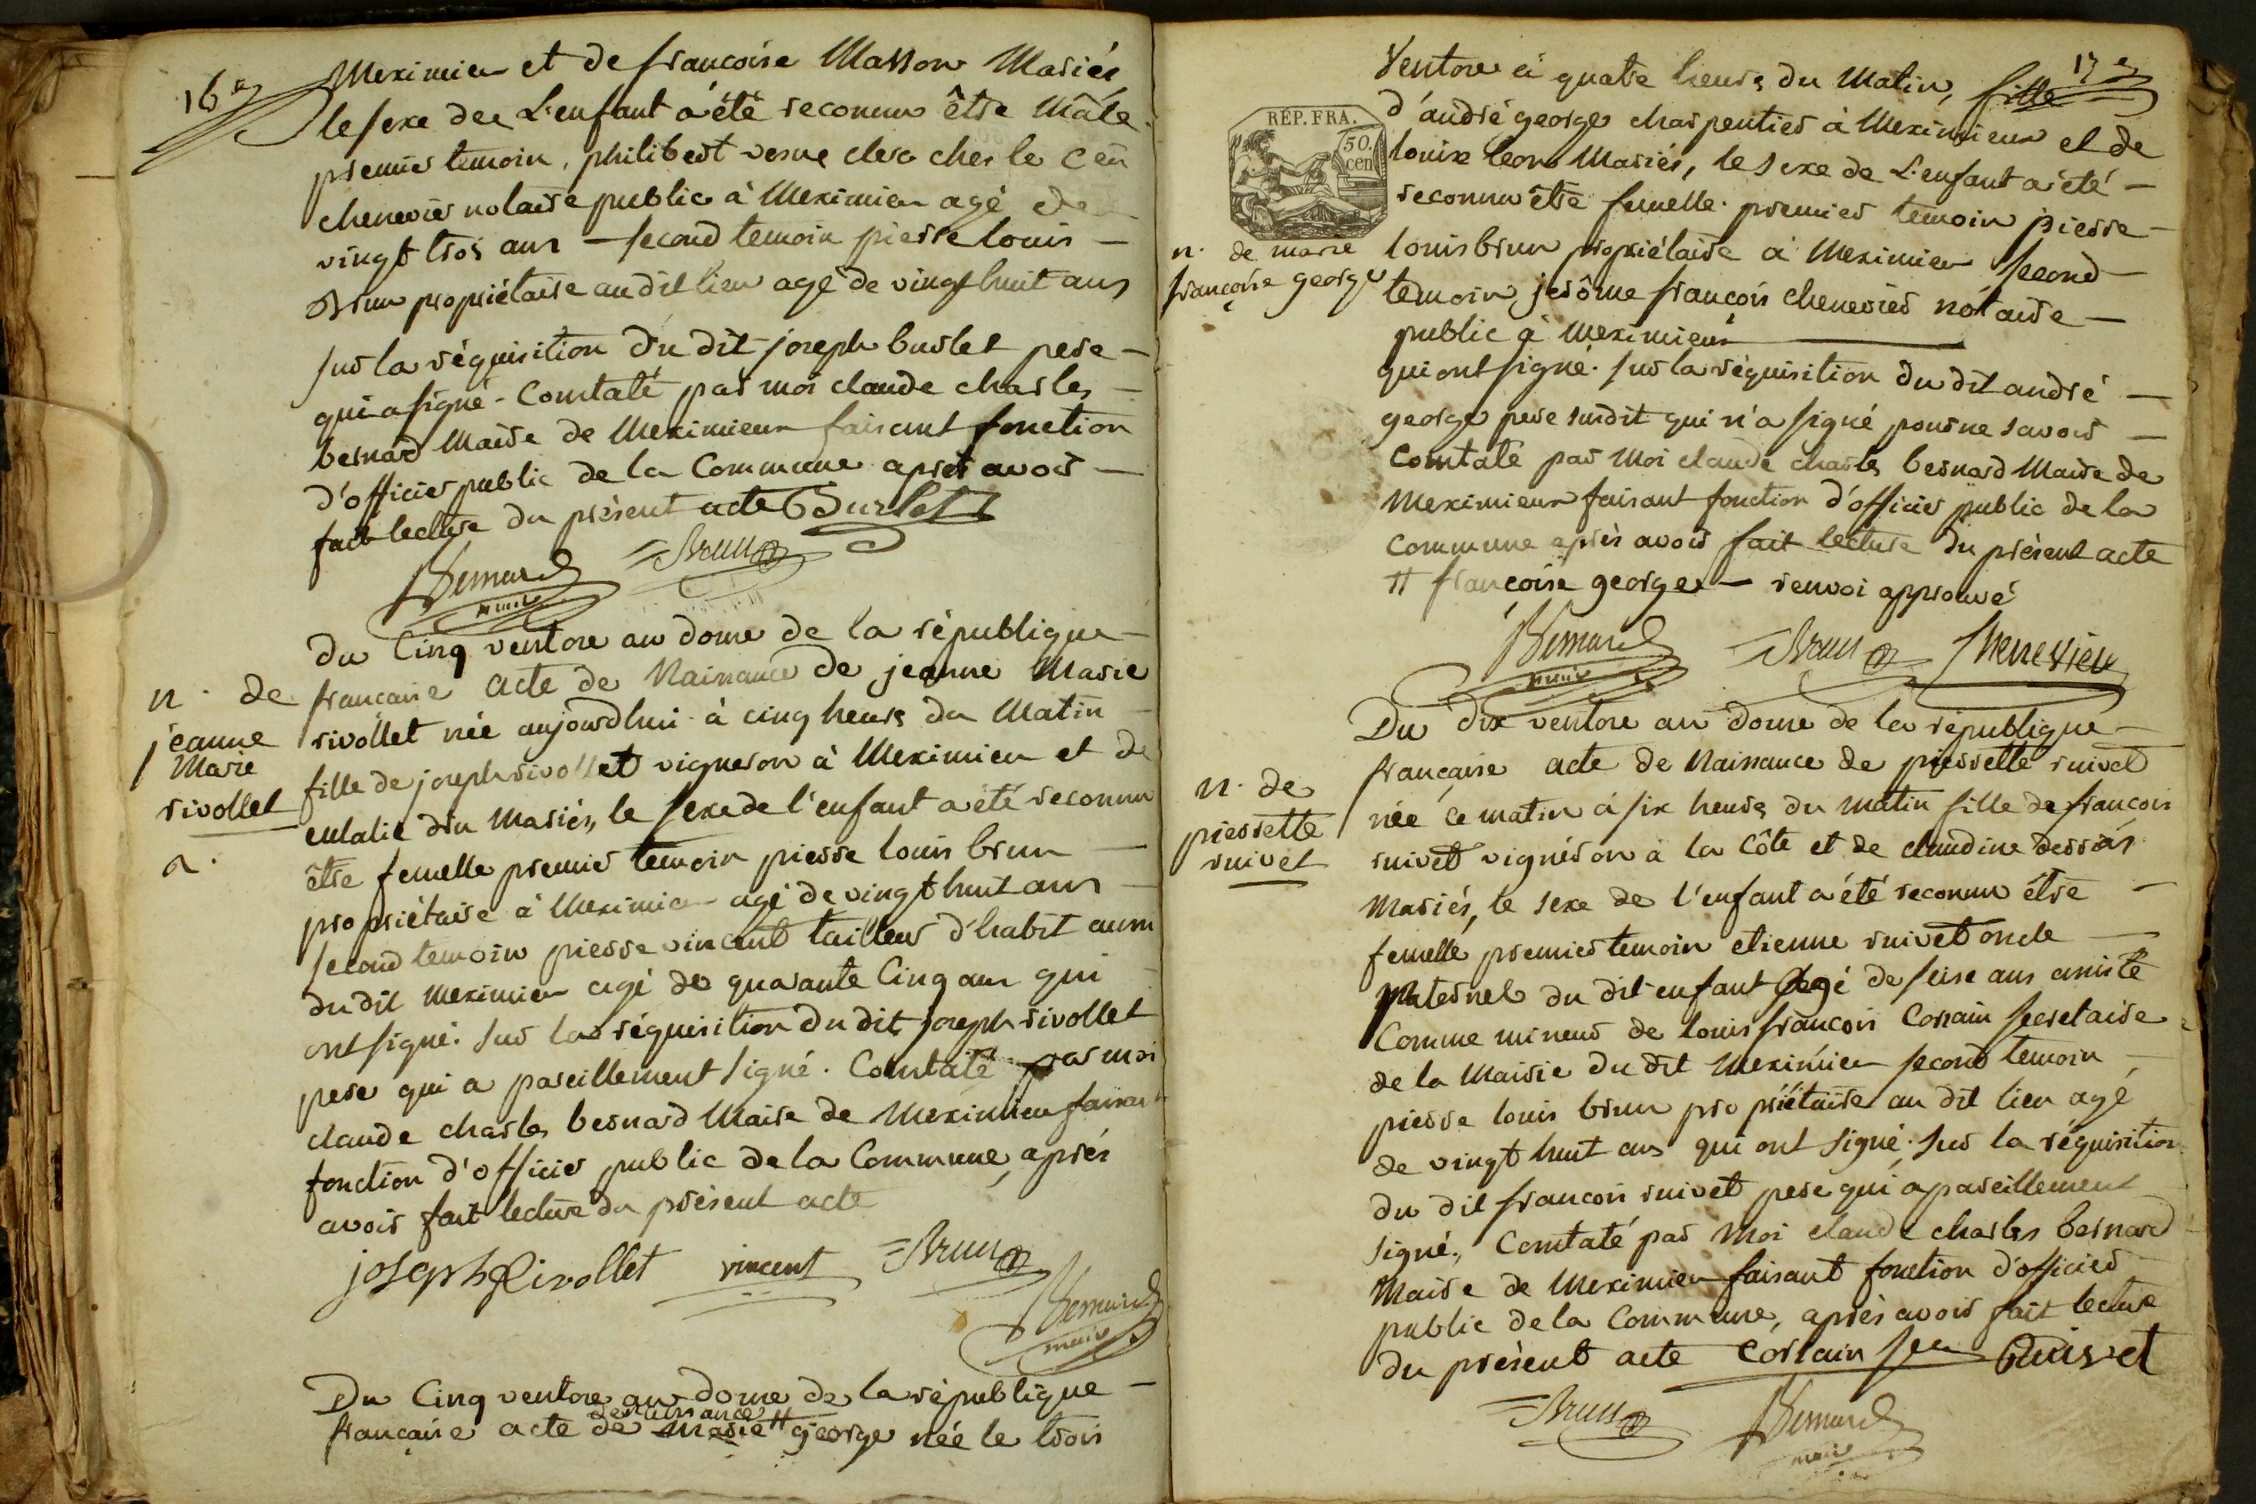 16e
Meximieu et de francoise Masson Mariés
le sexe de L'enfant a été reconnu être Mâle
premier temoin, philibert verne clerc ches le Cen
chenevier notaire public à Meximieu agé de
vingt trois ans - second temoin pierre louis
Brun propriétaire au dit lieu agé de vingt huit ans
sur la réquisition du dit joseph burlet pere
qui a signé - Constaté par moi claude charles
bernard Maire de Meximieux faisant fonction
d'officier public de la Commune après avoir
fait lecture du présent acte Burlet
Bernard Brun
maire
n. de
jeanne
Marie
rivollet
Du Cinq ventose an douse de la république
française acte de Naissance de jeanne Marie
rivollet née aujourdhui à cinq heures du Matin
fille de joseph rivollet vigneron à Meximieu et de
eulalie Mariés, le sexe de l'enfant a été reconnu
être femelle premier temoin pierre louis brun
propriétaire à Meximieu agé de vingt huit ans
second temoin pierre vincent tailleur d'habit aussi
du dit Meximieu agé de quarante Cinq ans qui
ont signé. sur la réquisition du dit joseph rivollet
pere qui a pareillement signé. Constaté par moi
claude charles bernard Maire de Meximieu faisant
fonction d'officier public de la Commune, après
avoir fait lecture du présent acte
joseph Rivollet vincent Brun
Bernard
maire
Du Cinq ventose an douse de la république
de naissance
française acte de Marie # george née le trois
17e
Ventose à quatre heures du Matin, fille
RÉP. FRA.
50.
cen
d'andré george charpentier à Meximieux et de
louise leon Mariés, le sexe de L'enfant a été
reconnu être femelle. premier temoin pierre
n. de marie
françoise george
louis brun propriétaire à Meximieu second
temoin, jerôme françois chenevier notaire
public à Meximieux
qui ont signé. sur la réquisition du dit andré
george pere susdit qui n'a signé pour ne savoir
Constaté par Moi claude charles bernard Maire de
Meximieux faisant fonction d'officier public de la
Commune après avoir fait lecture du présent acte
# françoise george - renvoi approuvé
Bernard Brun Chenevier
maire
n. de
pierrette
ruivet
Du dix ventose an douse de la république
française acte de Naissance de pierrette ruivet
née ce matin à six heures du matin fille de françois
ruivet vignéron à la Côte et de claudine
Mariés, le sexe de l'enfant a été reconnu être
femelle, premier temoin etienne ruivet oncle
paternel du dit enfant agé de seise ans assisté
Comme mineur de louis françois Corsain secretaire
de la Mairie du dit Meximieu second temoin
pierre louis brun propriétaire au dit lieu agé
de vingt huit ans qui ont signé. sur la réquisition
du dit françois ruivet pere qui a pareillement
signé., Constaté par Moi claude charles bernard
Maire de Meximieu faisant fonction d'officier
public de la Commune, après avoir fait lecture
du présent acte Corsain sec Ruivet
Brun Bernard
maire